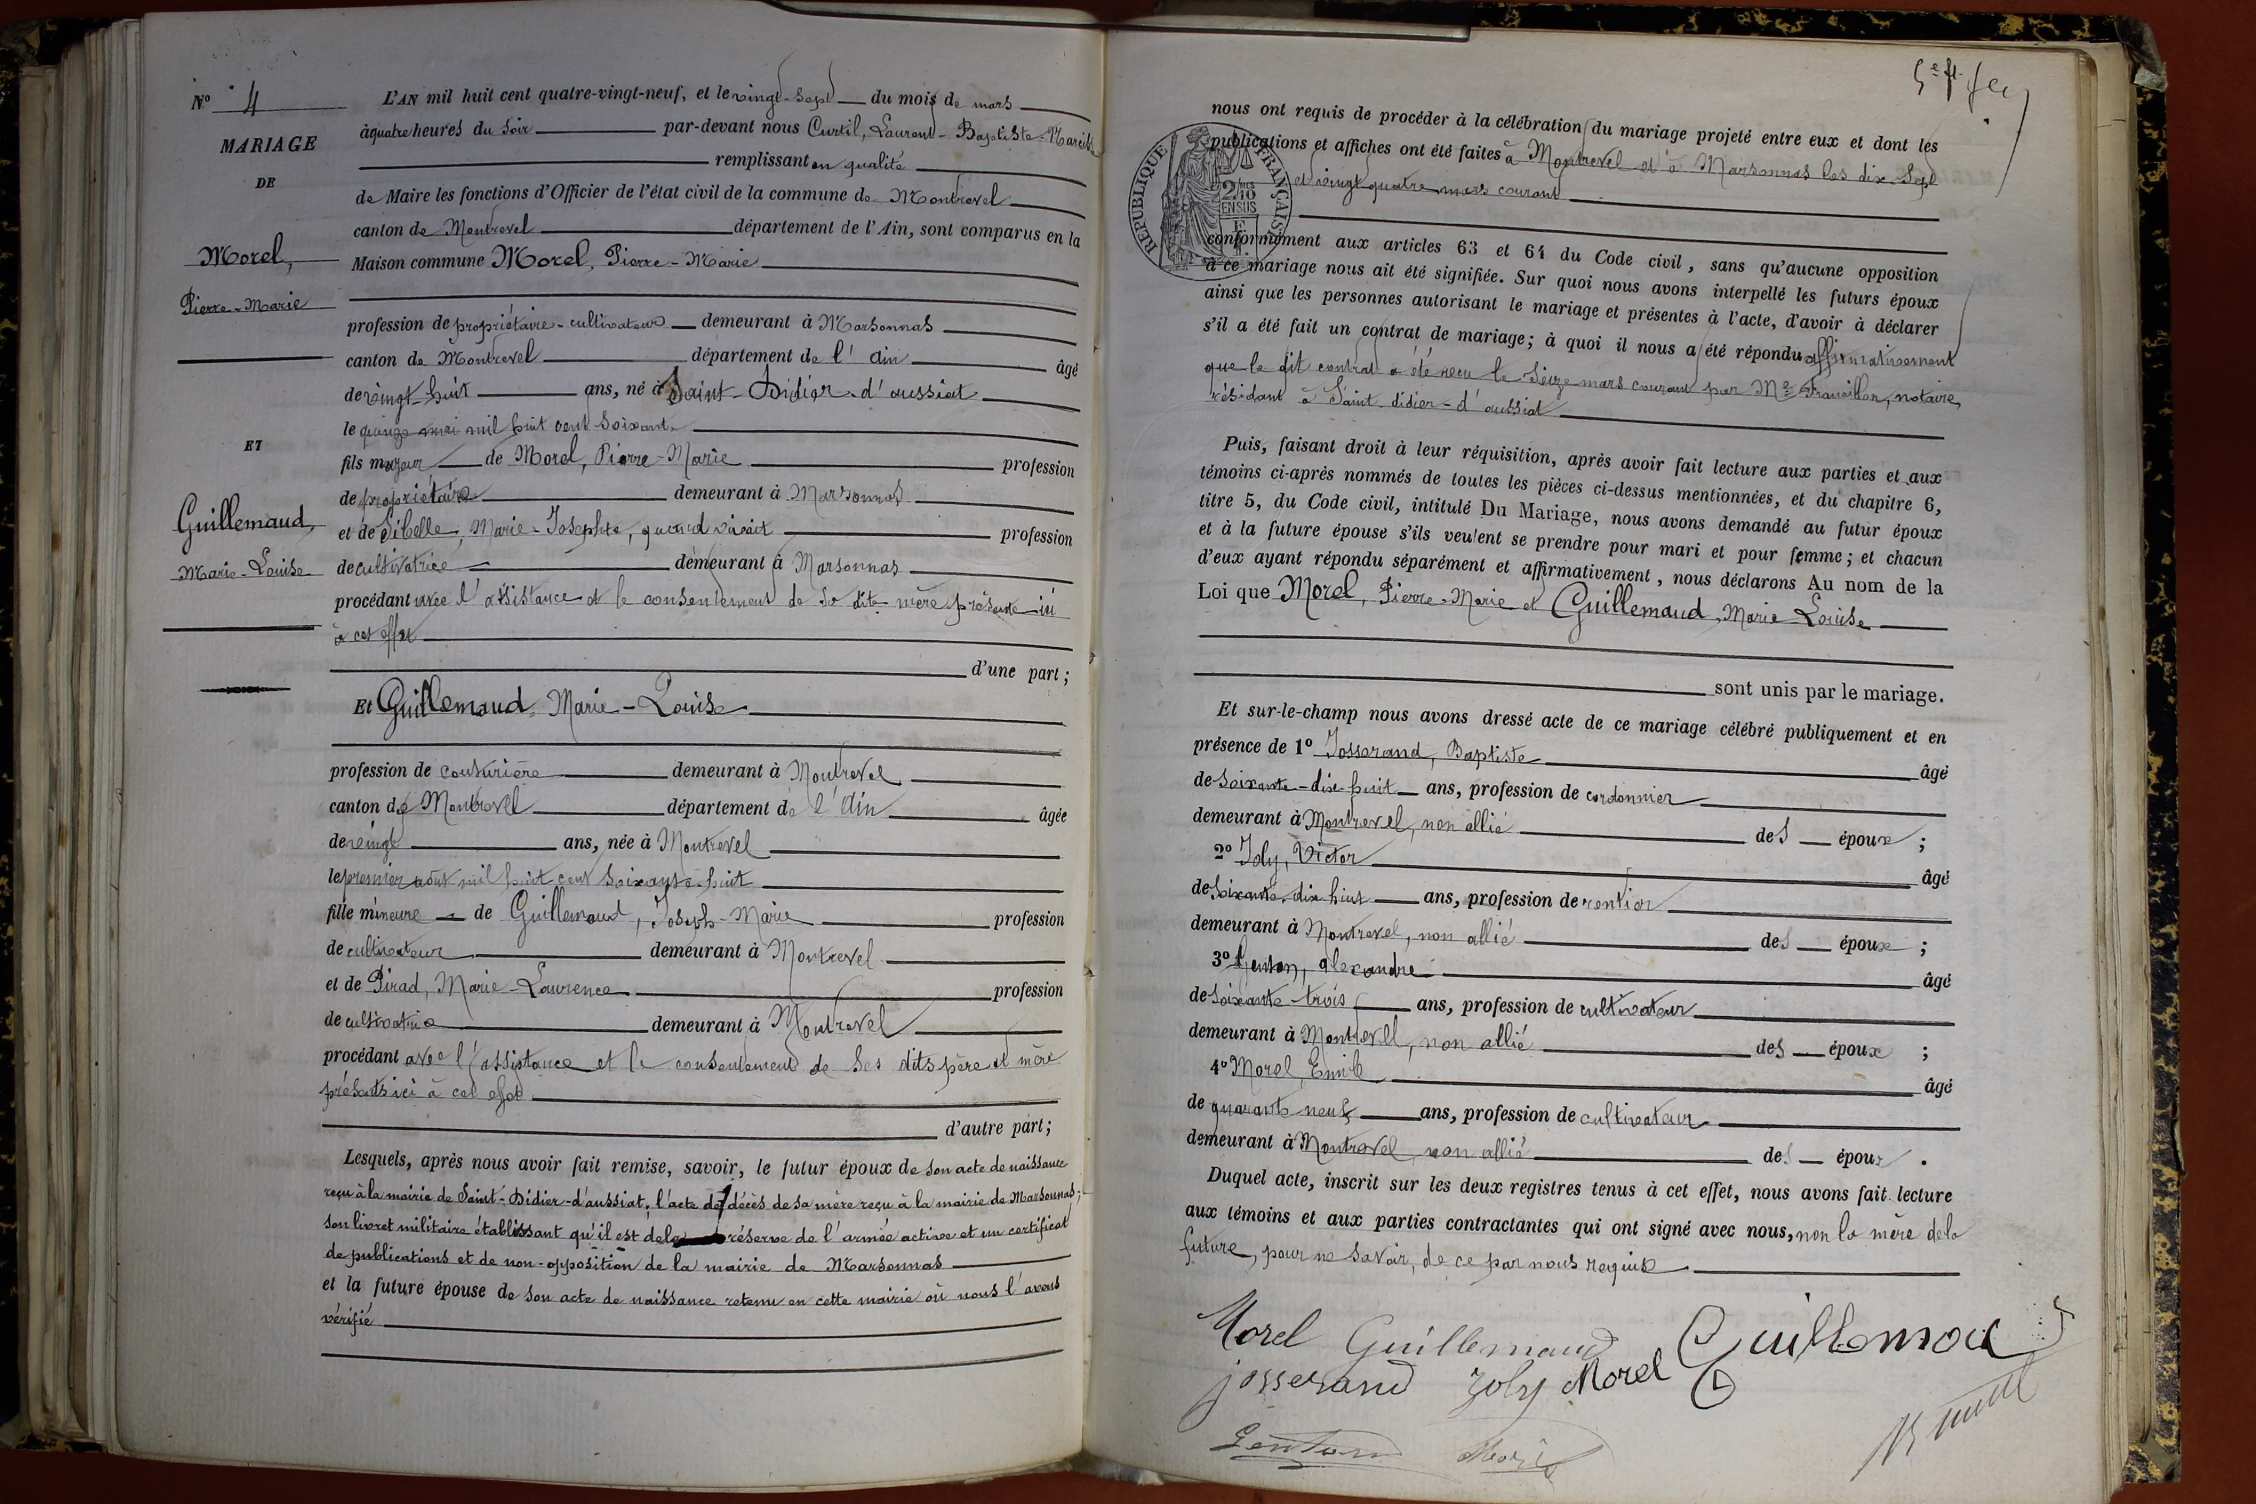 N° 4
MARIAGE
DE
Morel,
Pierre-Marie
ET
Guillemaud,
Marie-Louise
L'AN mil huit cent quatre-vingt-neuf, et le vingt-sept du mois de mars
à quatre heures du soir par-devant nous Curtil, Laurent-Baptiste-Marcille
remplissant en qualité
de Maire les fonctions d'Officier de l'état civil de la commune de Montrevel
canton de Montrevel département de l'Ain, sont comparus en la
Maison commune Morel, Pierre-Marie
profession de propriétaire-cultivateur demeurant à Marsonnas
canton de Montrevel département de l'ain âgé
de vingt-huit ans, né à Saint-Didier-d'aussiat
le quinze mai mil huit cent soixante
fils majeur de Morel, Pierre-Marie profession
de propriétaire demeurant à Marsonnas
et de Sibelle, Marie-Josephte, quand vivait profession
de cultivatrice demeurant à Marsonnas
procédant avec l'assistance et le consentement de sa dite mère présente ici
à cet effet
d'une part;
Et Guillemaud, Marie-Louise
profession de couturière demeurant à Montrevel
canton de Montrevel département de l'Ain âgée
de vingt ans, née à Montrevel
le premier aout mil huit cent soixante-huit
fille mineure de Guillemaud, Joseph-Marie profession
de cultivateur demeurant à Montrevel
et de Pirad, Marie-Laurence profession
de cultivatrice demeurant à Montrevel
procédant avec l'assistance et le consentement de ses dits père et mère
présents ici à cet effet
d'autre part;
Lesquels, après nous avoir fait remise, savoir, le futur époux de son acte de naissance
reçu à la mairie de Saint-Didier-d'aussiat, l'acte de décès de sa mère reçu à la mairie de Marsonnas;
son livret militaire établissant qu'il est de la réserve de l'armée active et un certificat
de publications et de non-opposition de la mairie de Marsonnas
et la future épouse de son acte de naissance retenu en cette mairie où nous l'avons
vérifié
nous ont requis de procéder à la célébration du mariage projeté entre eux et dont les
publications et affiches ont été faites à Montrevel et à Marsonnas les dix-sept
et vingt quatre mars courant
RÉPUBLIQUE FRANÇAISE
conformément aux articles 63 et 64 du Code civil, sans qu'aucune opposition
à ce mariage nous ait été signifiée. Sur quoi nous avons interpellé les futurs époux
ainsi que les personnes autorisant le mariage et présentes à l'acte, d'avoir à déclarer
s'il a été fait un contrat de mariage; à quoi il nous a été répondu affirmativement
que le dit contrat a été reçu le seize mars courant par Me notaire,
résidant à Saint-didier-d'aussiat
Puis, faisant droit à leur réquisition, après avoir fait lecture aux parties et aux
témoins ci-après nommés de toutes les pièces ci-dessus mentionnées, et du chapitre 6,
titre 5, du Code civil, intitulé Du Mariage, nous avons demandé au futur époux
et à la future épouse s'ils veulent se prendre pour mari et pour femme; et chacun
d'eux ayant répondu séparément et affirmativement, nous déclarons Au nom de la
Loi que Morel, Pierre-Marie et Guillemaud, Marie-Louise
sont unis par le mariage.
Et sur-le-champ nous avons dressé acte de ce mariage célébré publiquement et en
présence de 1° Josserand, Baptiste âgé
de soixante-dix-huit ans, profession de cordonnier
demeurant à Montrevel, non allié des époux;
2° Joly, Victor âgé
de soixante-dix huit ans, profession de rentier
demeurant à Montrevel, non allié des époux;
3° Genton, alexandre âgé
de soixante-trois ans, profession de cultivateur
demeurant à Montrevel, non allié des époux;
4° Morel, Emile âgé
de quarante neuf ans, profession de cultivateur
demeurant à Montrevel, non allié des époux.
Duquel acte, inscrit sur les deux registres tenus à cet effet, nous avons fait lecture
aux témoins et aux parties contractantes qui ont signé avec nous, non la mère de la
future, pour ne savoir, de ce par nous requise
Morel Guillemaud Guillemau
josserand Joly Morel
Genton Morel